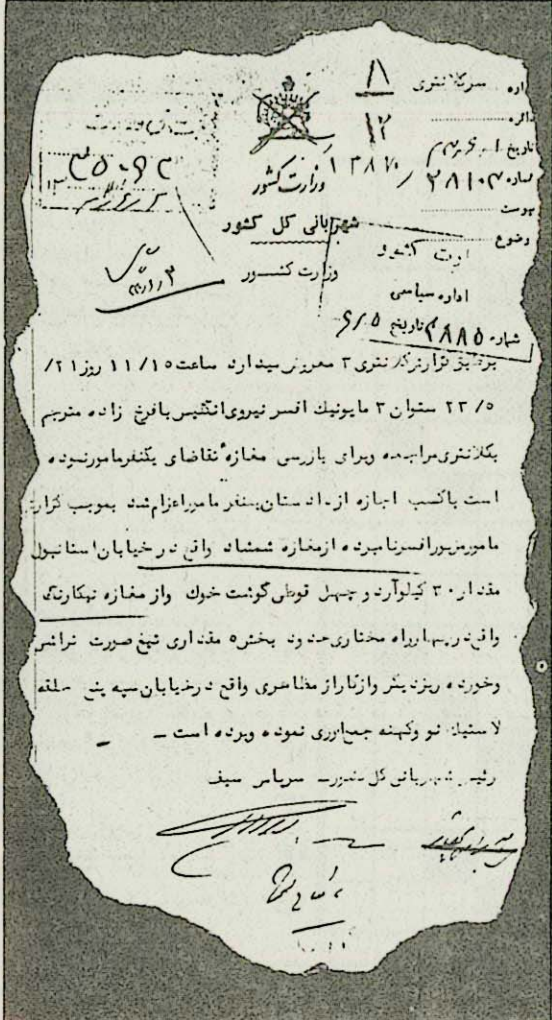 اداره سرکلانتری ۸
دائره ۱۲
تاریخ
شماره ۲۸۱۰۴ / ۱۳۸۷۰
پیوست
وضوع
وزارت کشور
شهربانی کل کشور
وزارت کشور
وزارت کشور
اداره سیاسی
شماره ۲۸۸۵ تاریخ ۶/۰۵
برطبق گزارش کلانتری ۳ معروض میدارد ساعت ۱۱/۱۵ روز ۲۱/
۲۳/۵ ستوان ۳ مایونیك افسر نیروی انگلیس بافرخ زاده مترجم
بکلانتری مراجعه وبرای بازرسی مغازه تقاضای یکنفر مامور نموده
است باکسب اجازه از دادستان یکنفر مامور اعزام شد بموجب گزارش
مامور مزبور افسر نامبرده از مغازه شمشاد واقع در خیابان استانبول
مقدار ۳۰ کیلو آرد و چهل قوطی گوشت خوك واز مغازه
واقع در چهارراه مختاری حدود بخش ۵ مقداری تیغ صورت تراشی
وخورده ریز دیگر واز گاراژ مظاهری واقع در خیابان سپه پنج حلقه
لاستیك نو وکهنه جمع آوری نموده وبرده است –
رئیس شهربانی کل کشور – سرپاس سیف